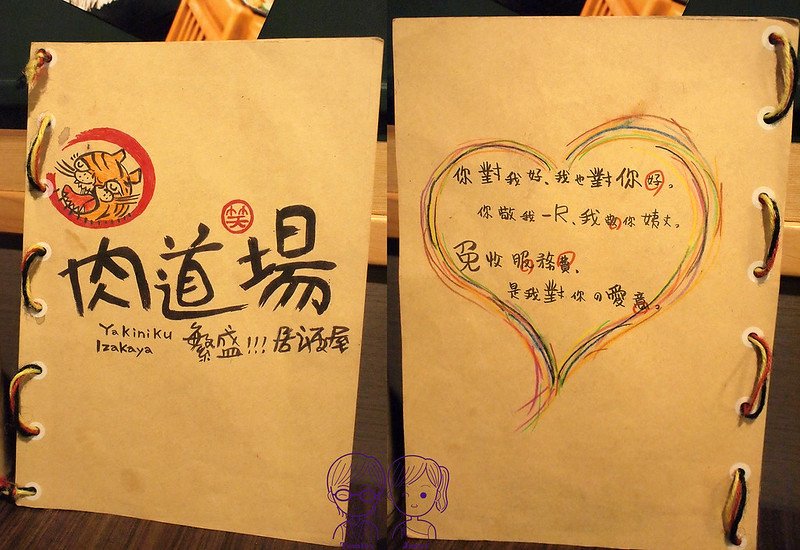 笑
肉道場
Yakiniku
Izakaya
繁盛!!!居酒屋
你對我好、我也對你好。
你敬我一尺、我敬你姨丈。
免收服務費、
是我對你の愛意。